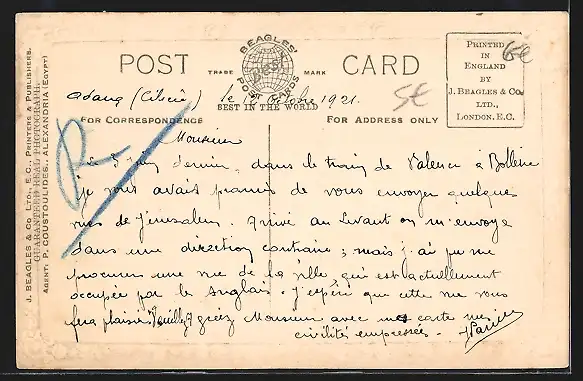 J. BEAGLES & CO LTD., E.C., PRINTERS & PUBLISHERS.
GUARANTEED REAL PHOTOGRAPH.
AGENT: P. COUSTOULIDES, ALEXANDRIA (EGYPT)
POST CARD
BEAGLES'
POST CARDS
TRADE MARK
BEST IN THE WORLD
PRINTED
IN
ENGLAND
BY
J. BEAGLES & CO.
LTD.,
LONDON, E.C.
5€
FOR CORRESPONDENCE
FOR ADDRESS ONLY
Adana (Cilicie) le octobre 1921.
Monsieur
Le 3 juin dernier, dans le train de Valence à Bollène
je vous avais promis de vous envoyer quelques
vues de Jérusalem. Arrivé au Levant on m'envoye
dans une direction contraire ; mais j'ai pu me
procurer une vue de la ville qui est actuellement
occupée par les anglais. J'espère que cette vue vous
fera plaisir. Veuillez agréez Monsieur avec ma carte mes
civilités empressées.